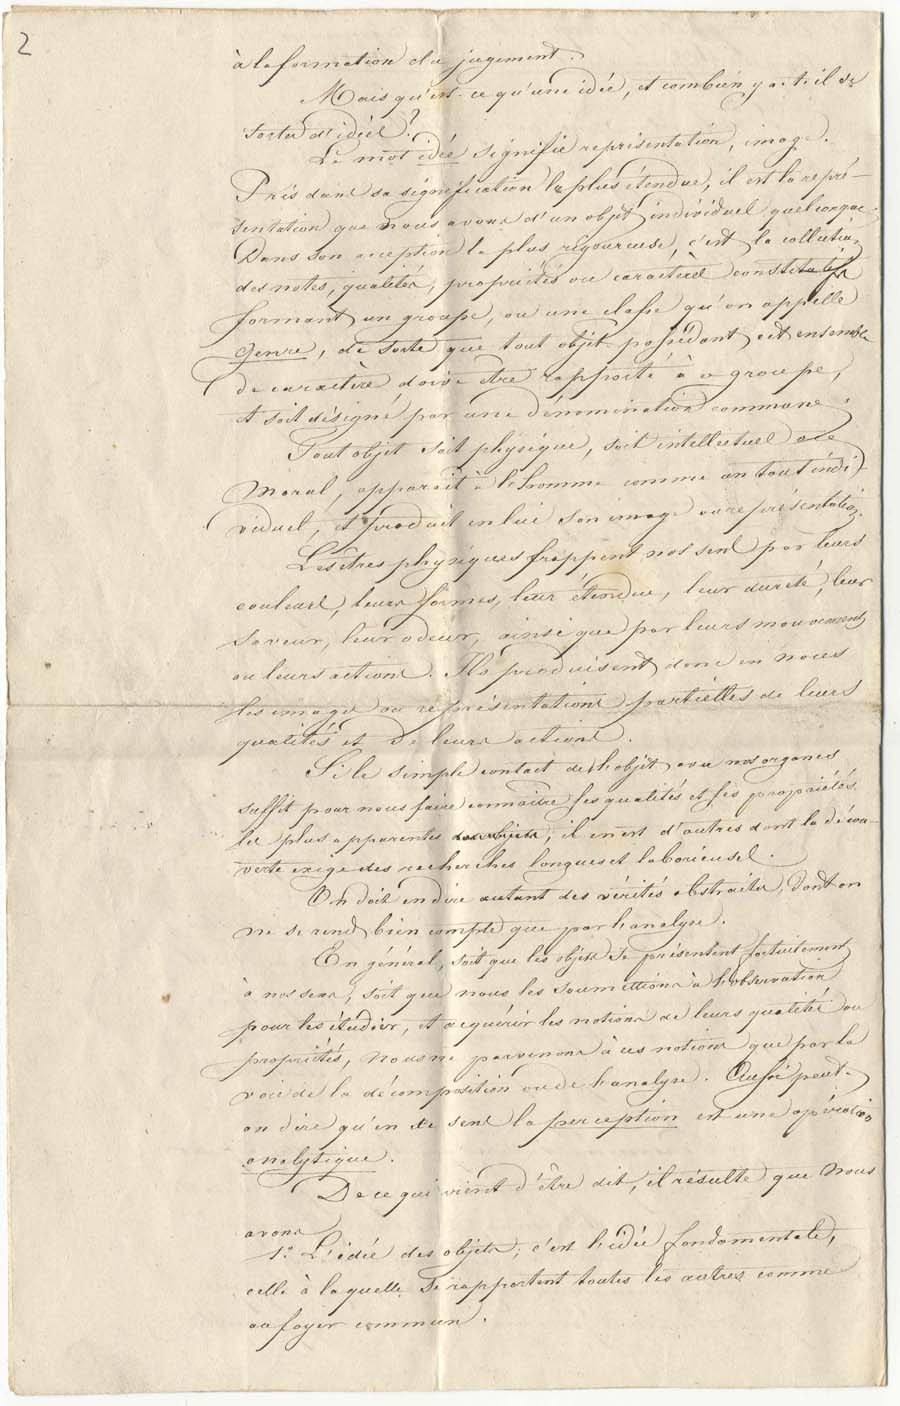 2
à la formation du jugement.
Mais qu'est-ce qu'une idée, et combien y a-t-il de
sortes d'idées ?
Le mot idée signifie représentation, image.
Pris dans sa signification la plus étendue, il est la repré-
sentation que nous avons d'un objet individuel quelconque.
Dans son acception la plus rigoureuse, c'est la collection
des notes, qualités, propriétés ou caractères constitutifs
formant un groupe, ou une classe qu'on appelle
genre, de sorte que tout objet possédant cet ensemble
de caractère doive être rapporté à ce groupe,
et soit désigné par une dénomination commune.
Tout objet soit physique, soit intellectuel ou
moral, apparait à l'homme comme un tout indi-
viduel, et produit en lui son image ou représentation.
Les êtres physiques frappent nos sens par leurs
couleurs, leurs formes, leur étendue, leur dureté, leur
saveur, leur odeur, ainsi que par leurs mouvements
ou leurs actions. Ils produisent donc en nous
les images ou représentations partielles de leurs
qualités et de leurs actions.
Si le simple contact de l'objet avec nos organes
suffit pour nous faire connaître ses qualités et ses propriétés
les plus apparentes, il en est d'autres dont la décou-
verte exige des recherches longues et laborieuses.
On doit en dire autant des vérités abstraites, dont on
ne se rend bien compte que par l'analyse.
En général, soit que les objets se présentent fortuitement
à nos sens, soit que nous les soumettions à l'observation
pour les étudier, et acquérir les notions de leurs qualités ou
propriétés, nous ne parvenons à ces notions que par la
voie de la décomposition ou de l'analyse. Aussi peut-
on dire qu'en ce sens la perception est une opération
analytique.
De ce qui vient d'être dit, il résulte que nous
avons
1.º L'idée des objets; c'est l'idée fondamentale,
celle à laquelle se rapportent toutes les autres comme
au foyer commun.